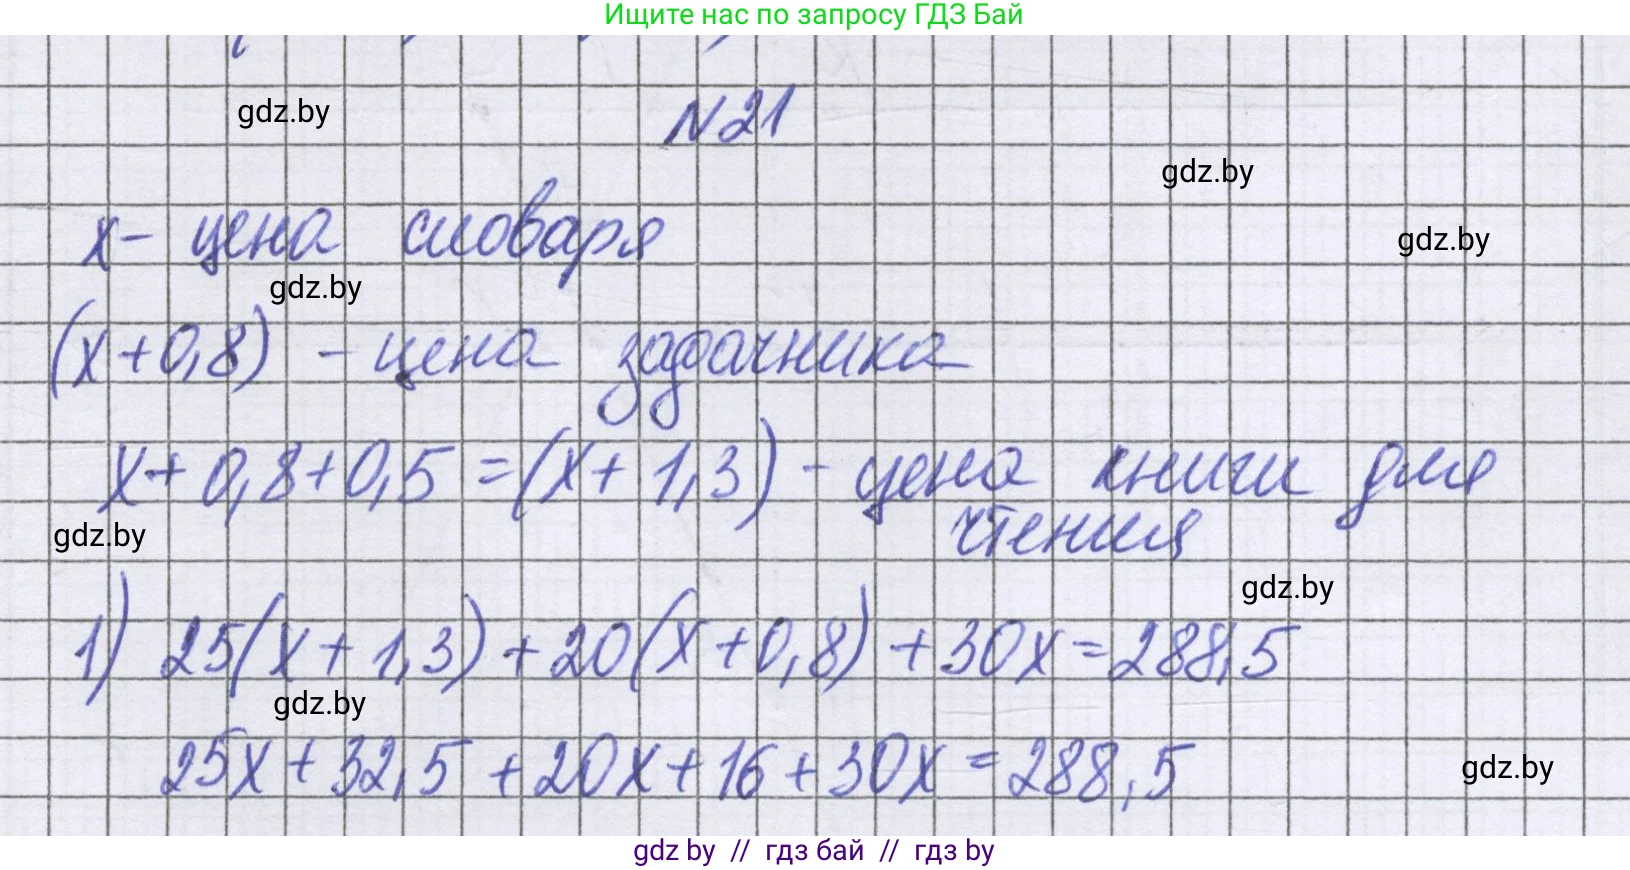 Ищите нас по запросу ГДЗ Бай
gdz.by
N21
gdz.by
x - цена словаря
gdz.by
gdz.by
(x+0,8) - цена задачника
x+0,8+0,5=(x+1,3) - цена книги для
чтения
gdz.by
gdz.by
1) 25(x+1,3)+20(x+0,8)+30x=288,5
gdz.by
25x+32,5+20x+16+30x=288,5
gdz.by
gdz by // гдз бай // гдз by